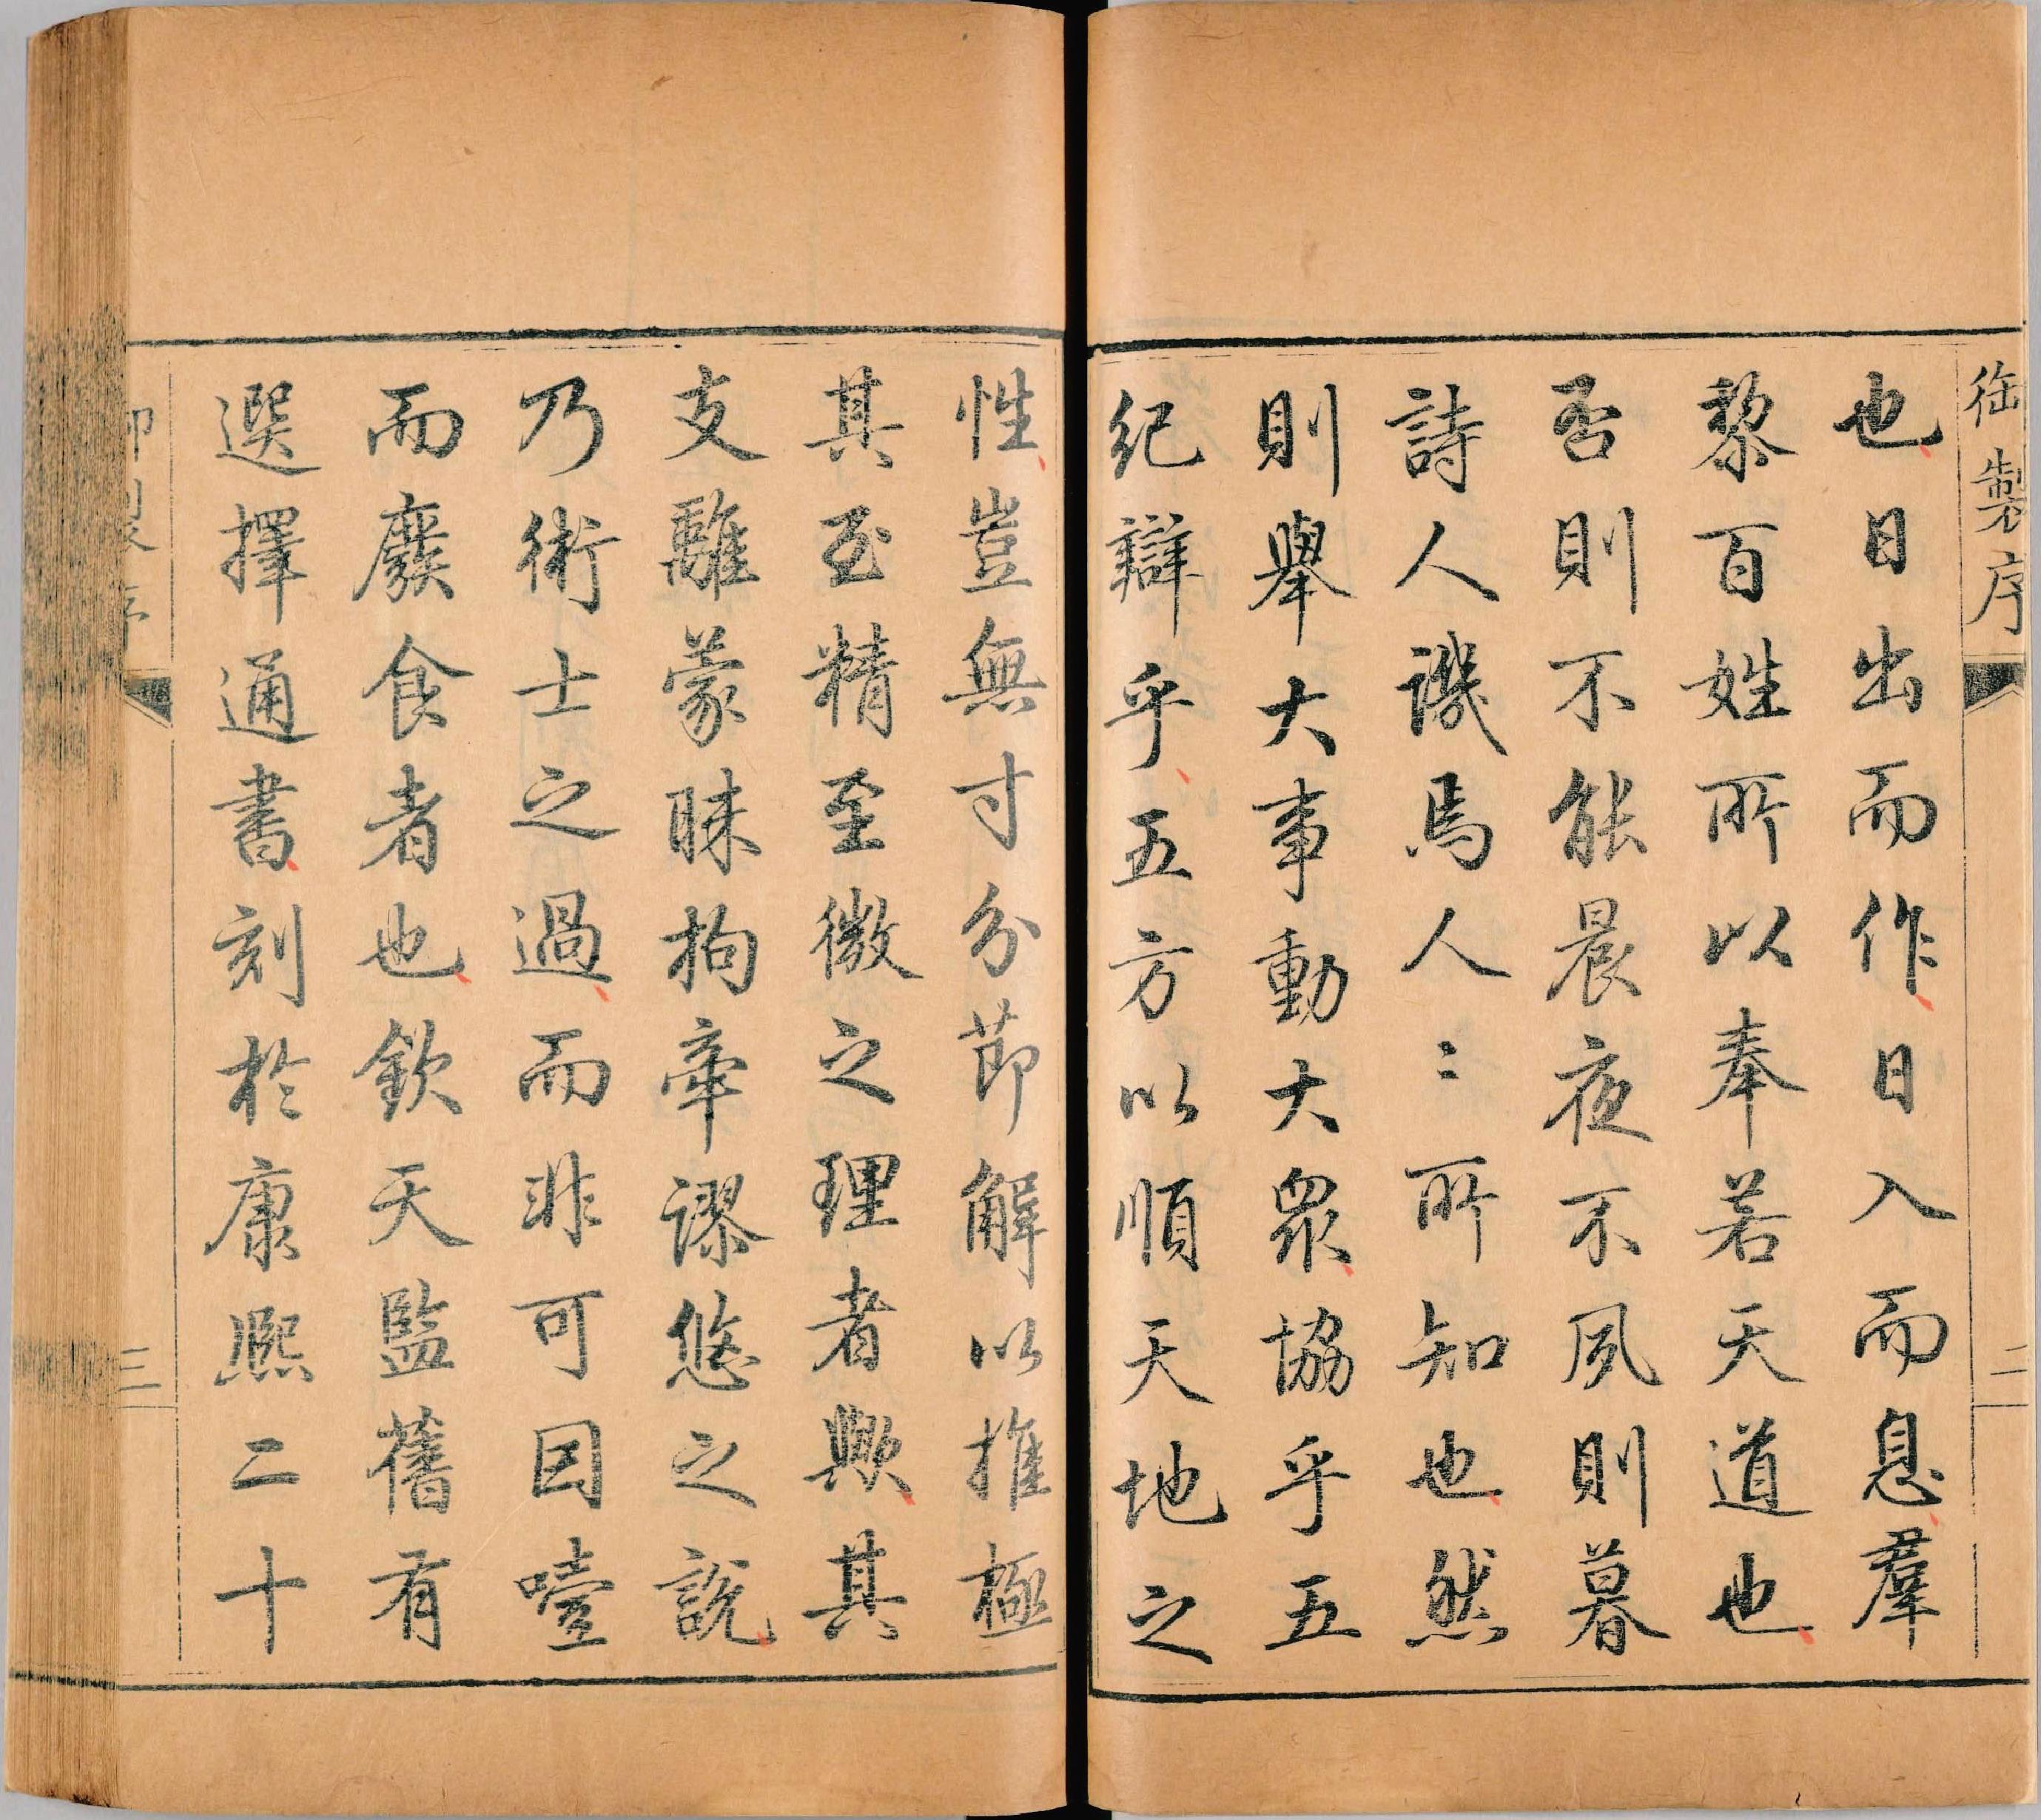 御製序
二
也日出而作日入而息羣
黎百姓所以奉若天道也
否則不能晨夜不夙則暮
詩人譏焉人〻所知也然
則舉大事動大衆協乎五
紀辯乎五方以順天地之
性豈無寸分節解以推極
其至精至微之理者歟其
支離蒙昧拘牽謬悠之說
乃術士之過而非可因噎
而廢食者也欽天監舊有
選擇通書刻於康熙二十
三